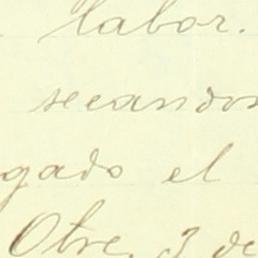 labor.
secandos
gado el
Otre, 3 de